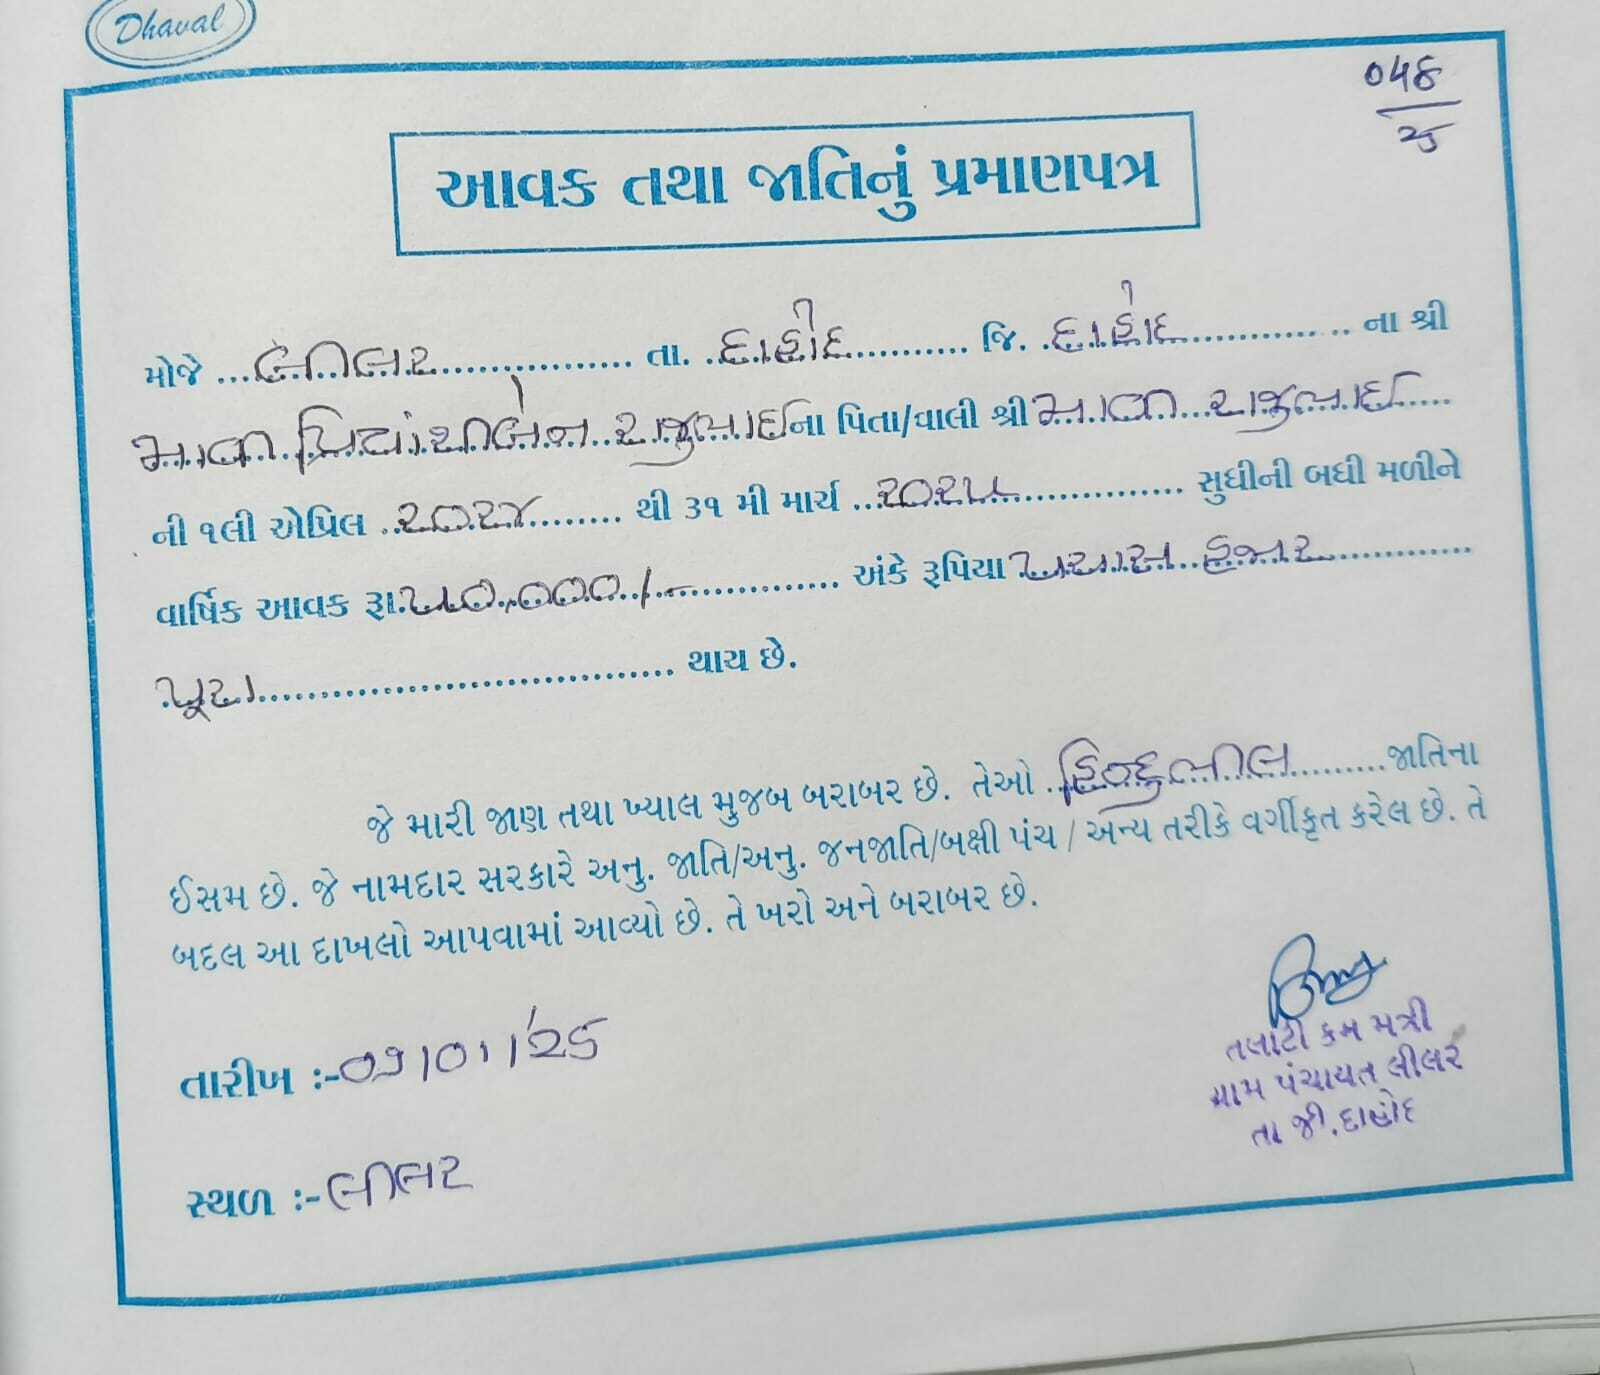 Dhaval
૦૫૬
૨૫
આવક તથા જાતિનું પ્રમાણપત્ર
મોજે ...લીલર................ તા. ..દાહોદ........... જિ. ..દાહોદ.............. ના શ્રી
માવી પ્રિયાંશીબેન રાજુભાઈ ના પિતા/વાલી શ્રી માવી રાજુભાઈ....
ની ૧લી એપ્રિલ ..૨૦૨૪........ થી ૩૧ મી માર્ચ ..૨૦૨૫.............. સુધીની બધી મળીને
વાર્ષિક આવક રૂા. ૫૦,૦૦૦/-............ અંકે રૂપિયા પચાસ હજાર...........
.પૂરા.................................. થાય છે.
જે મારી જાણ તથા ખ્યાલ મુજબ બરાબર છે. તેઓ ..હિન્દુ ભીલ.........જાતિના
ઈસમ છે. જે નામદાર સરકારે અનુ. જાતિ/અનુ. જનજાતિ/બક્ષી પંચ / અન્ય તરીકે વર્ગીકૃત કરેલ છે. તે
બદલ આ દાખલો આપવામાં આવ્યો છે. તે ખરો અને બરાબર છે.
તારીખ :-૦૧/૦૧/૨૫
સ્થળ :-લીલર
તલાટી કમ મંત્રી
ગ્રામ પંચાયત લીલર
તા જી.દાહોદ